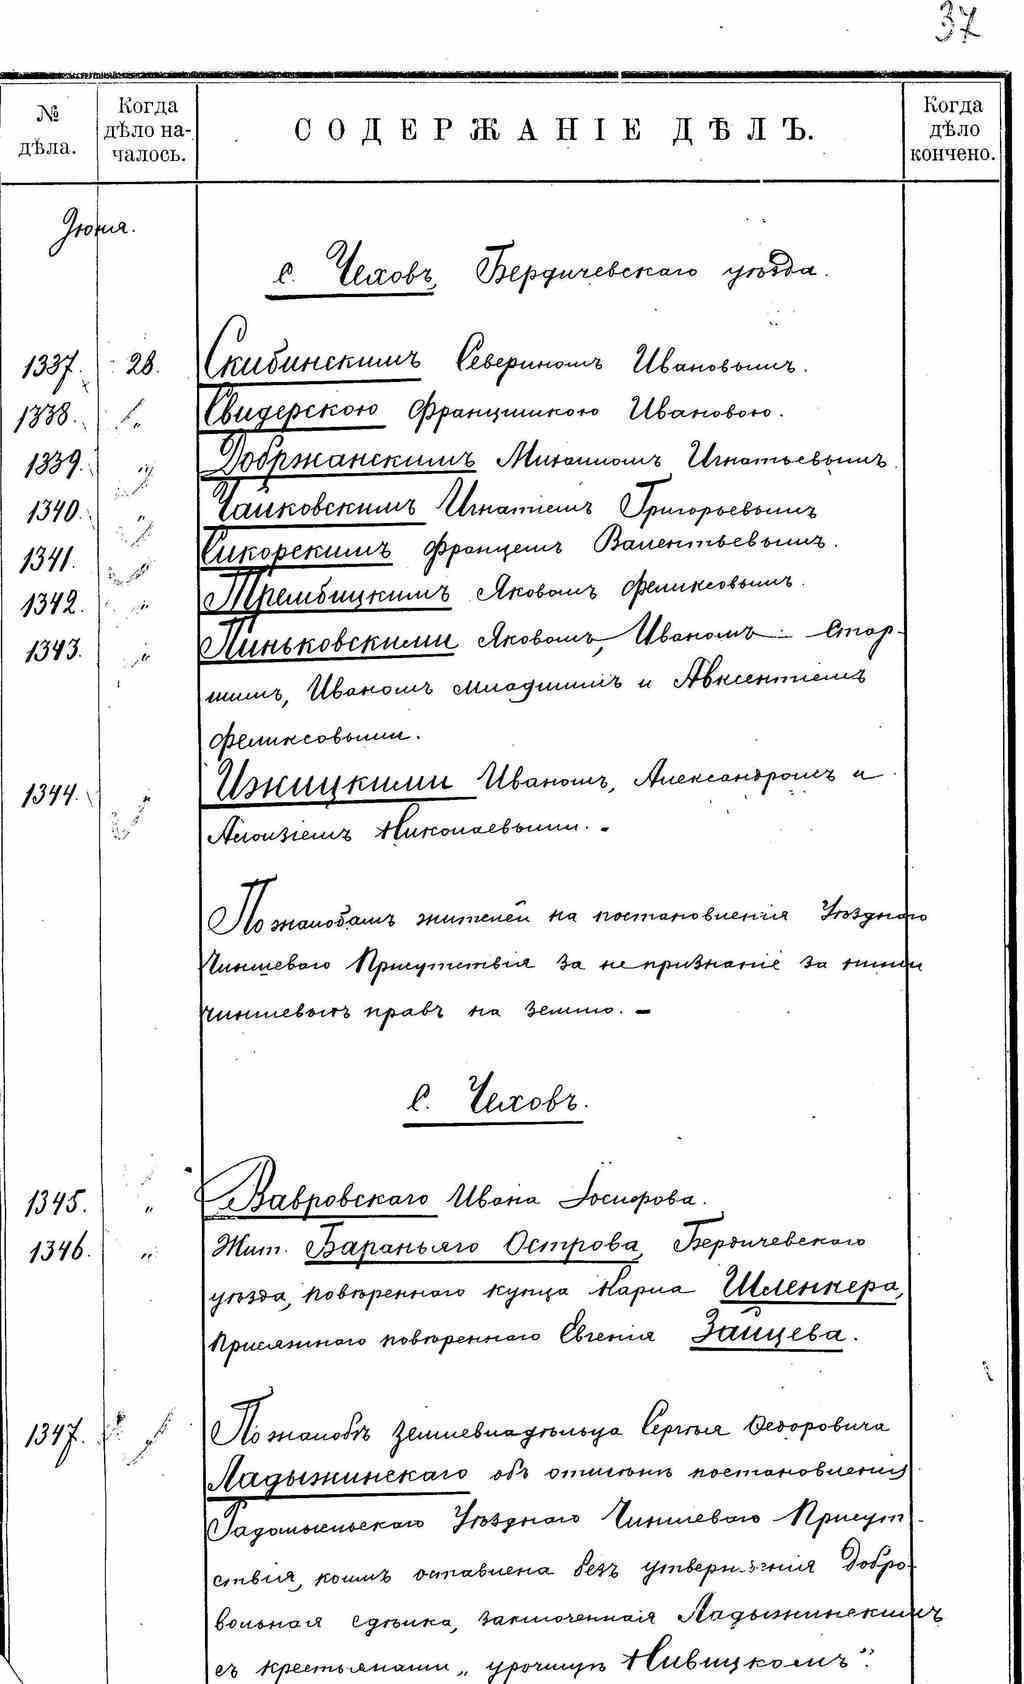 37
№ дѣла. Когда дѣло началось. СОДЕРЖАНІЕ ДѢЛЪ. Когда дѣло кончено.
Іюня.
с. Чеховъ, Бердичевскаго уѣзда.
1337. 28. Скибинскимъ Севериномъ Ивановымъ.
1338. „ Свидерскою Францишкою Ивановою.
1339. „ Добржанскимъ Михаиломъ Игнатьевымъ
1340. „ Чайковскимъ Игнатіемъ Григорьевымъ
1341. „ Сикорскимъ Францемъ Валентьевымъ.
1342. „ Трембицкимъ Яковомъ Феликсовымъ.
1343. „ Линьковскими Яковомъ, Иваномъ Стар-
шимъ, Иваномъ младшимъ и Авксентіемъ
Феликсовыми.
1344. „ Ижицкими Иваномъ, Александромъ и
Алоизіемъ Николаевыми. -
По жалобамъ жителей на постановленія Уѣзднаго
Чиншеваго Присутствія за непризнаніе за ними
чиншевыхъ правъ на землю. -
С. Чеховъ.
1345. „ Вавровскаго Ивана Іосифова.
1346. „ Жит. Бараньяго Острова, Бердичевскаго
уѣзда, повѣреннаго купца Карла Шленкера,
Присяжнаго повѣреннаго Евгенія Зайцева.
1347. „ По жалобѣ землевладѣльца Сергѣя Ѳедоровича
Ладыжинскаго объ отмѣнѣ постановленія
Радомысльскаго Уѣзднаго Чиншеваго Присут-
ствія, коимъ оставлена безъ утвержденія Добро-
вольная сдѣлка, заключенная Ладыжинскимъ
съ крестьянами „урочищѣ Нивицкомъ".